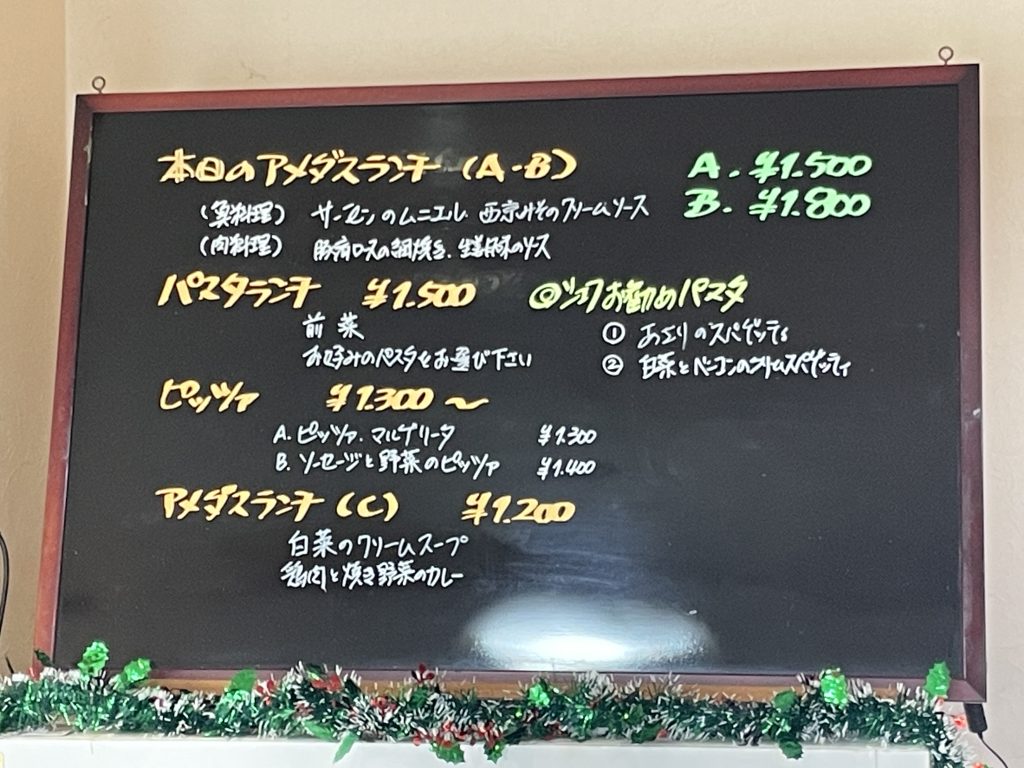 本日のアメダスランチ (A・B)
A. ¥1.500
B. ¥1.800
(魚料理) サーモンのムニエル 西京みそのクリームソース
(肉料理) 豚肩ロースの網焼き、生姜風味のソース
パスタランチ ¥1.500
前菜
お好みのパスタをお選び下さい
◎シェフお勧めパスタ
① あさりのスパゲッティ
② 白菜とベーコンのクリームスパゲッティ
ピッツァ ¥1.300～
A. ピッツァ.マルゲリータ ¥1.300
B. ソーセージと野菜のピッツァ ¥1.400
アメダスランチ (C) ¥1.200
白菜のクリームスープ
鶏肉と焼き野菜のカレー